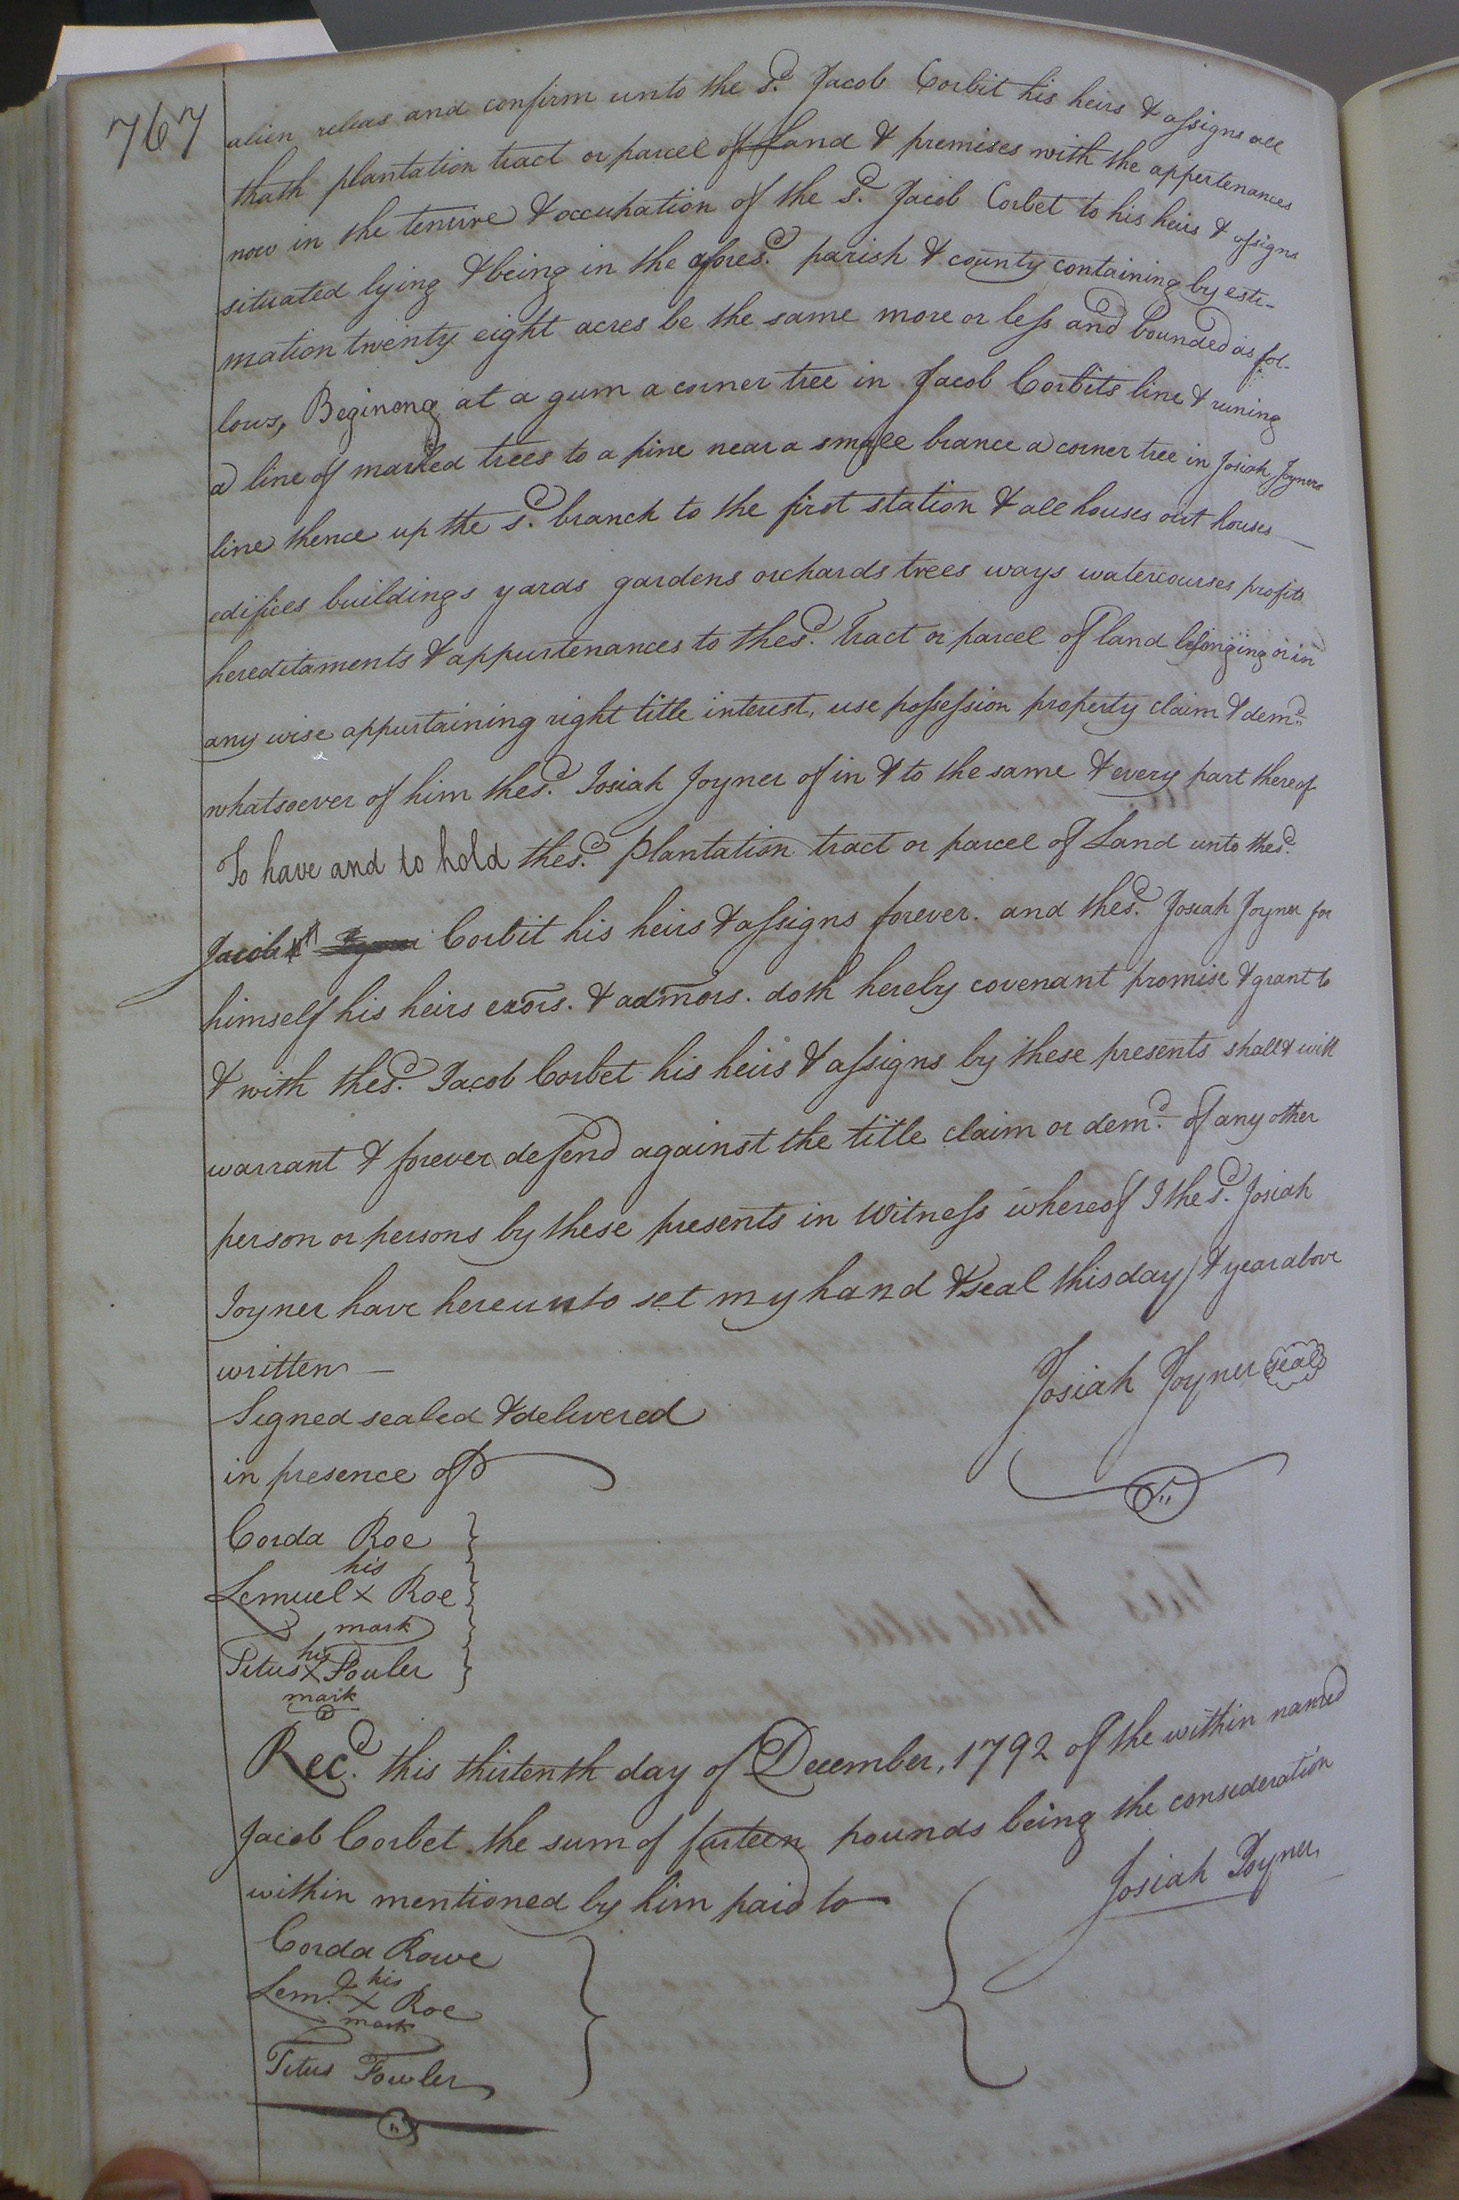 767
alien releas and confirm unto the sd. Jacob Corbit his heirs & assigns all
thath plantation tract or parcel of Land & premises with the appertenances
now in the tenure & occupation of the sd. Jacob Corbet to his heirs & assigns
situated lying & being in the aforesd. parish & county containing by esti-
mation twenty eight acres be the same more or less and bounded as fol-
lows, Begineng at a gum a corner tree in Jacob Corbits line & runing
a line of marked trees to a pine near a small brance a corner tree in Josiah Joyners
line thence up the sd. branch to the first station & all houses out houses
edifices buildings yards gardens orchards trees ways watercourses profits
hereditaments & appurtenances to the sd. Tract or parcel of land belonging or in
any wise appurtaining right title interest, use possession property claim & demd.
whatsoever of him the sd. Josiah Joyner of in & to the same & every part thereof
To have and to hold the sd. plantation tract or parcel of Land unto the sd.
Jacob Corbit his heirs & assigns forever. and the sd. Josiah Joyner for
himself his heirs exors. & admors. doth hereby covenant promise & grant to
& with the sd. Jacob Corbet his heirs & assigns by these presents shall & will
warrant & forever defend against the title claim or demd. of any other
person or persons by these presents in Witness whereof I the sd. Josiah
Joyner have hereunto set my hand & seal this day & year above
written —
Josiah Joyner seal
Signed sealed & delivered
in presence of
Corda Roe
his
Lemuel x Roe
mark
his
Titus x Fowler
mark
Recd. this thirtenth day of December, 1792 of the within named
Jacob Corbet the sum of forteen pounds being the consideration
within mentioned by him paid to
Josiah Joyner
Corda Rowe
his
Leml. x Roe
mark
Titus Fowler